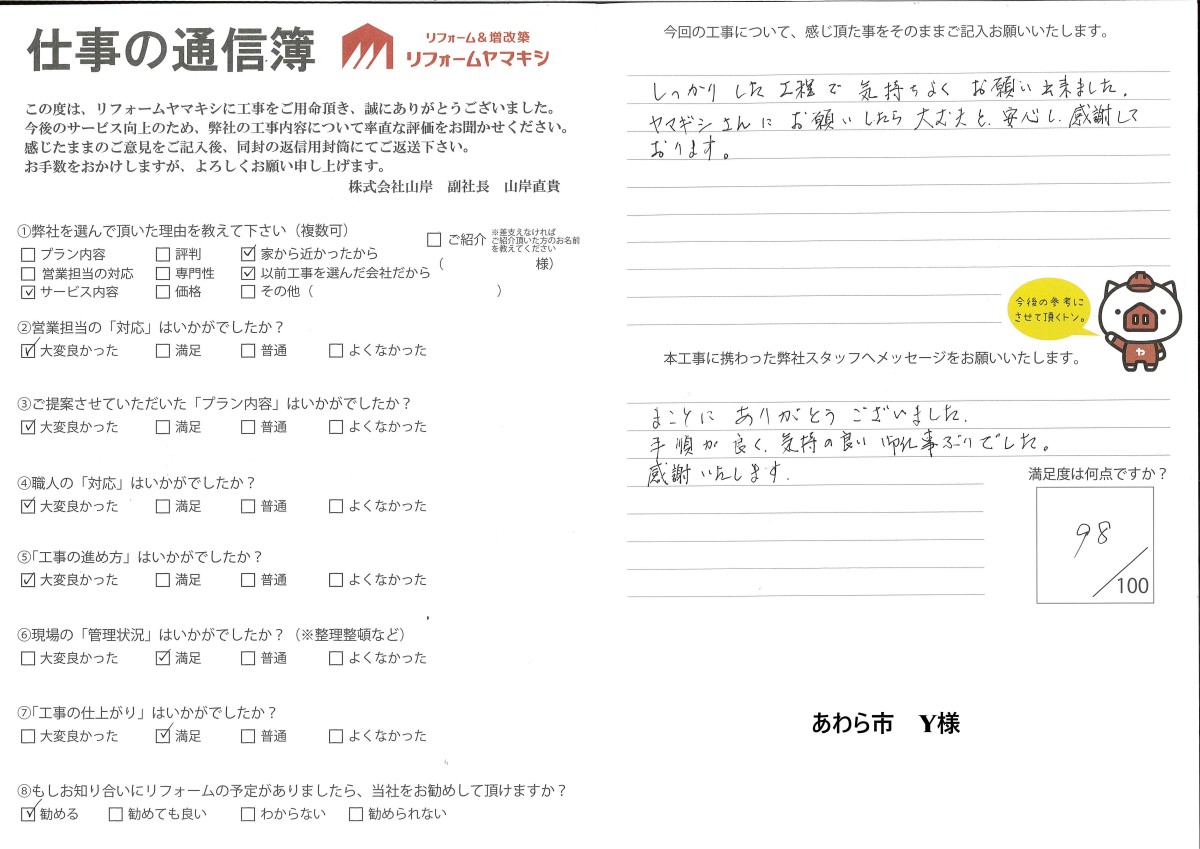 仕事の通信簿
リフォーム＆増改築
リフォームヤマキシ
この度は、リフォームヤマキシに工事をご用命頂き、誠にありがとうございました。
今後のサービス向上のため、弊社の工事内容について率直な評価をお聞かせください。
感じたままのご意見をご記入後、同封の返信用封筒にてご返送下さい。
お手数をおかけしますが、よろしくお願い申し上げます。
株式会社山岸　副社長　山岸直貴
①弊社を選んで頂いた理由を教えて下さい（複数可）
□ プラン内容 □ 評判 ☑ 家から近かったから
□ 営業担当の対応 □ 専門性 ☑ 以前工事を選んだ会社だから
☑ サービス内容 □ 価格 □ その他（　）
□ ご紹介
※差支えなければ
ご紹介頂いた方のお名前
を教えてください
（　様）
②営業担当の「対応」はいかがでしたか？
☑ 大変良かった □ 満足 □ 普通 □ よくなかった
③ご提案させていただいた「プラン内容」はいかがでしたか？
☑ 大変良かった □ 満足 □ 普通 □ よくなかった
④職人の「対応」はいかがでしたか？
☑ 大変良かった □ 満足 □ 普通 □ よくなかった
⑤「工事の進め方」はいかがでしたか？
☑ 大変良かった □ 満足 □ 普通 □ よくなかった
⑥現場の「管理状況」はいかがでしたか？（※整理整頓など）
□ 大変良かった ☑ 満足 □ 普通 □ よくなかった
⑦「工事の仕上がり」はいかがでしたか？
□ 大変良かった ☑ 満足 □ 普通 □ よくなかった
⑧もしお知り合いにリフォームの予定がありましたら、当社をお勧めして頂けますか？
☑ 勧める □ 勧めても良い □ わからない □ 勧められない
今回の工事について、感じ頂た事をそのままご記入お願いいたします。
しっかりした工程で気持ちよくお願い出来ました。
ヤマギシさんにお願いしたら大丈夫と、安心し、感謝して
おります。
今後の参考に
させて頂くトン。
や
本工事に携わった弊社スタッフへメッセージをお願いいたします。
まことにありがとうございました。
手順が良く、気持の良い御仕事ぶりでした。
感謝いたします。
満足度は何点ですか？
98
／100
あわら市　Y様